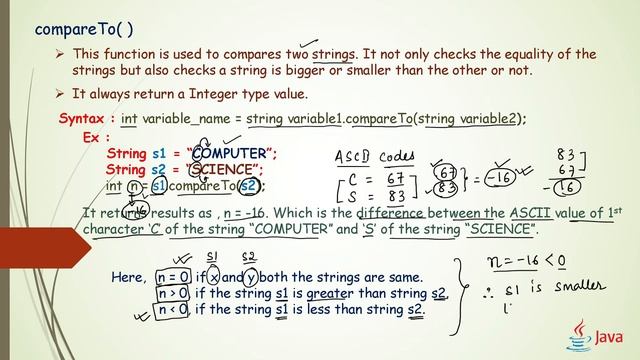 compareTo( )
This function is used to compares two strings. It not only checks the equality of the
strings but also checks a string is bigger or smaller than the other or not.
It always return a Integer type value.
Syntax : int variable_name = string variable1.compareTo(string variable2);
Ex :
String s1 = “COMPUTER”;
String s2 = “SCIENCE”;
int n = s1 compareTo(s2);
ASCII codes
C = 67
S = 83
67
83
= -16
83
67
- 16
-16
It returns results as , n = -16. Which is the difference between the ASCII value of 1st
character ‘C’ of the string “COMPUTER” and ‘S’ of the string “SCIENCE”.
s1 s2
Here, n = 0 if x and y both the strings are same.
n > 0, if the string s1 is greater than string s2,
n < 0, if the string s1 is less than string s2.
n = -16 < 0
∴ s1 is smaller
Java